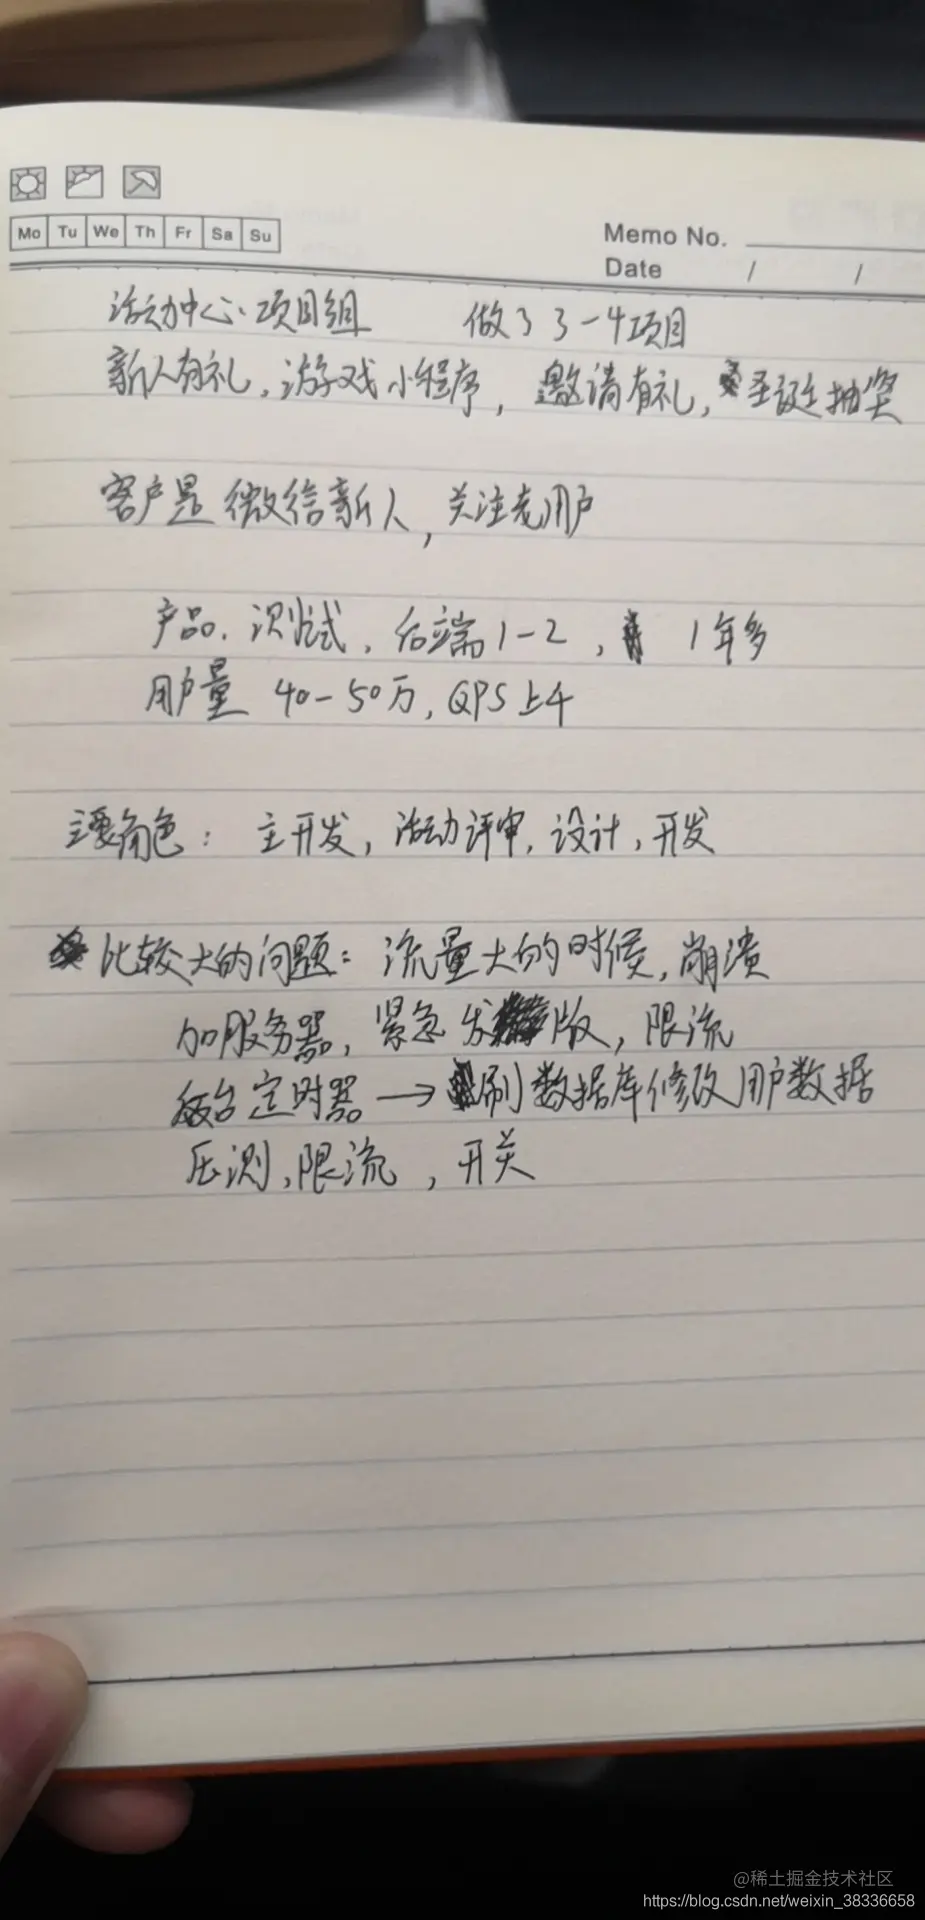 Mo Tu We Th Fr Sa Su
Memo No.
Date / /
活动中心、项目组 做了3-4项目
新人有礼,游戏小程序,邀请有礼,圣诞抽奖
客户是微信新人,关注老用户
产品、测试,后端1-2, 1年多
用户量 40-50万,QPS上千
主要角色: 主开发,活动评审,设计,开发
比较大的问题: 流量大的时候,崩溃
加服务器,紧急发版,限流
后台定时器 → 刷数据库修改用户数据
压测,限流,开关
@稀土掘金技术社区
https://blog.csdn.net/weixin_38336658